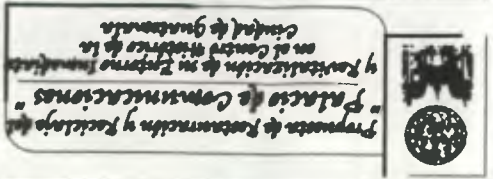 Propuesta de Restauración y Reciclaje del
"Palacio de Comunicaciones"
y Revitalización de su Entorno Inmediato
en el Centro Histórico de la
Ciudad de Guatemala